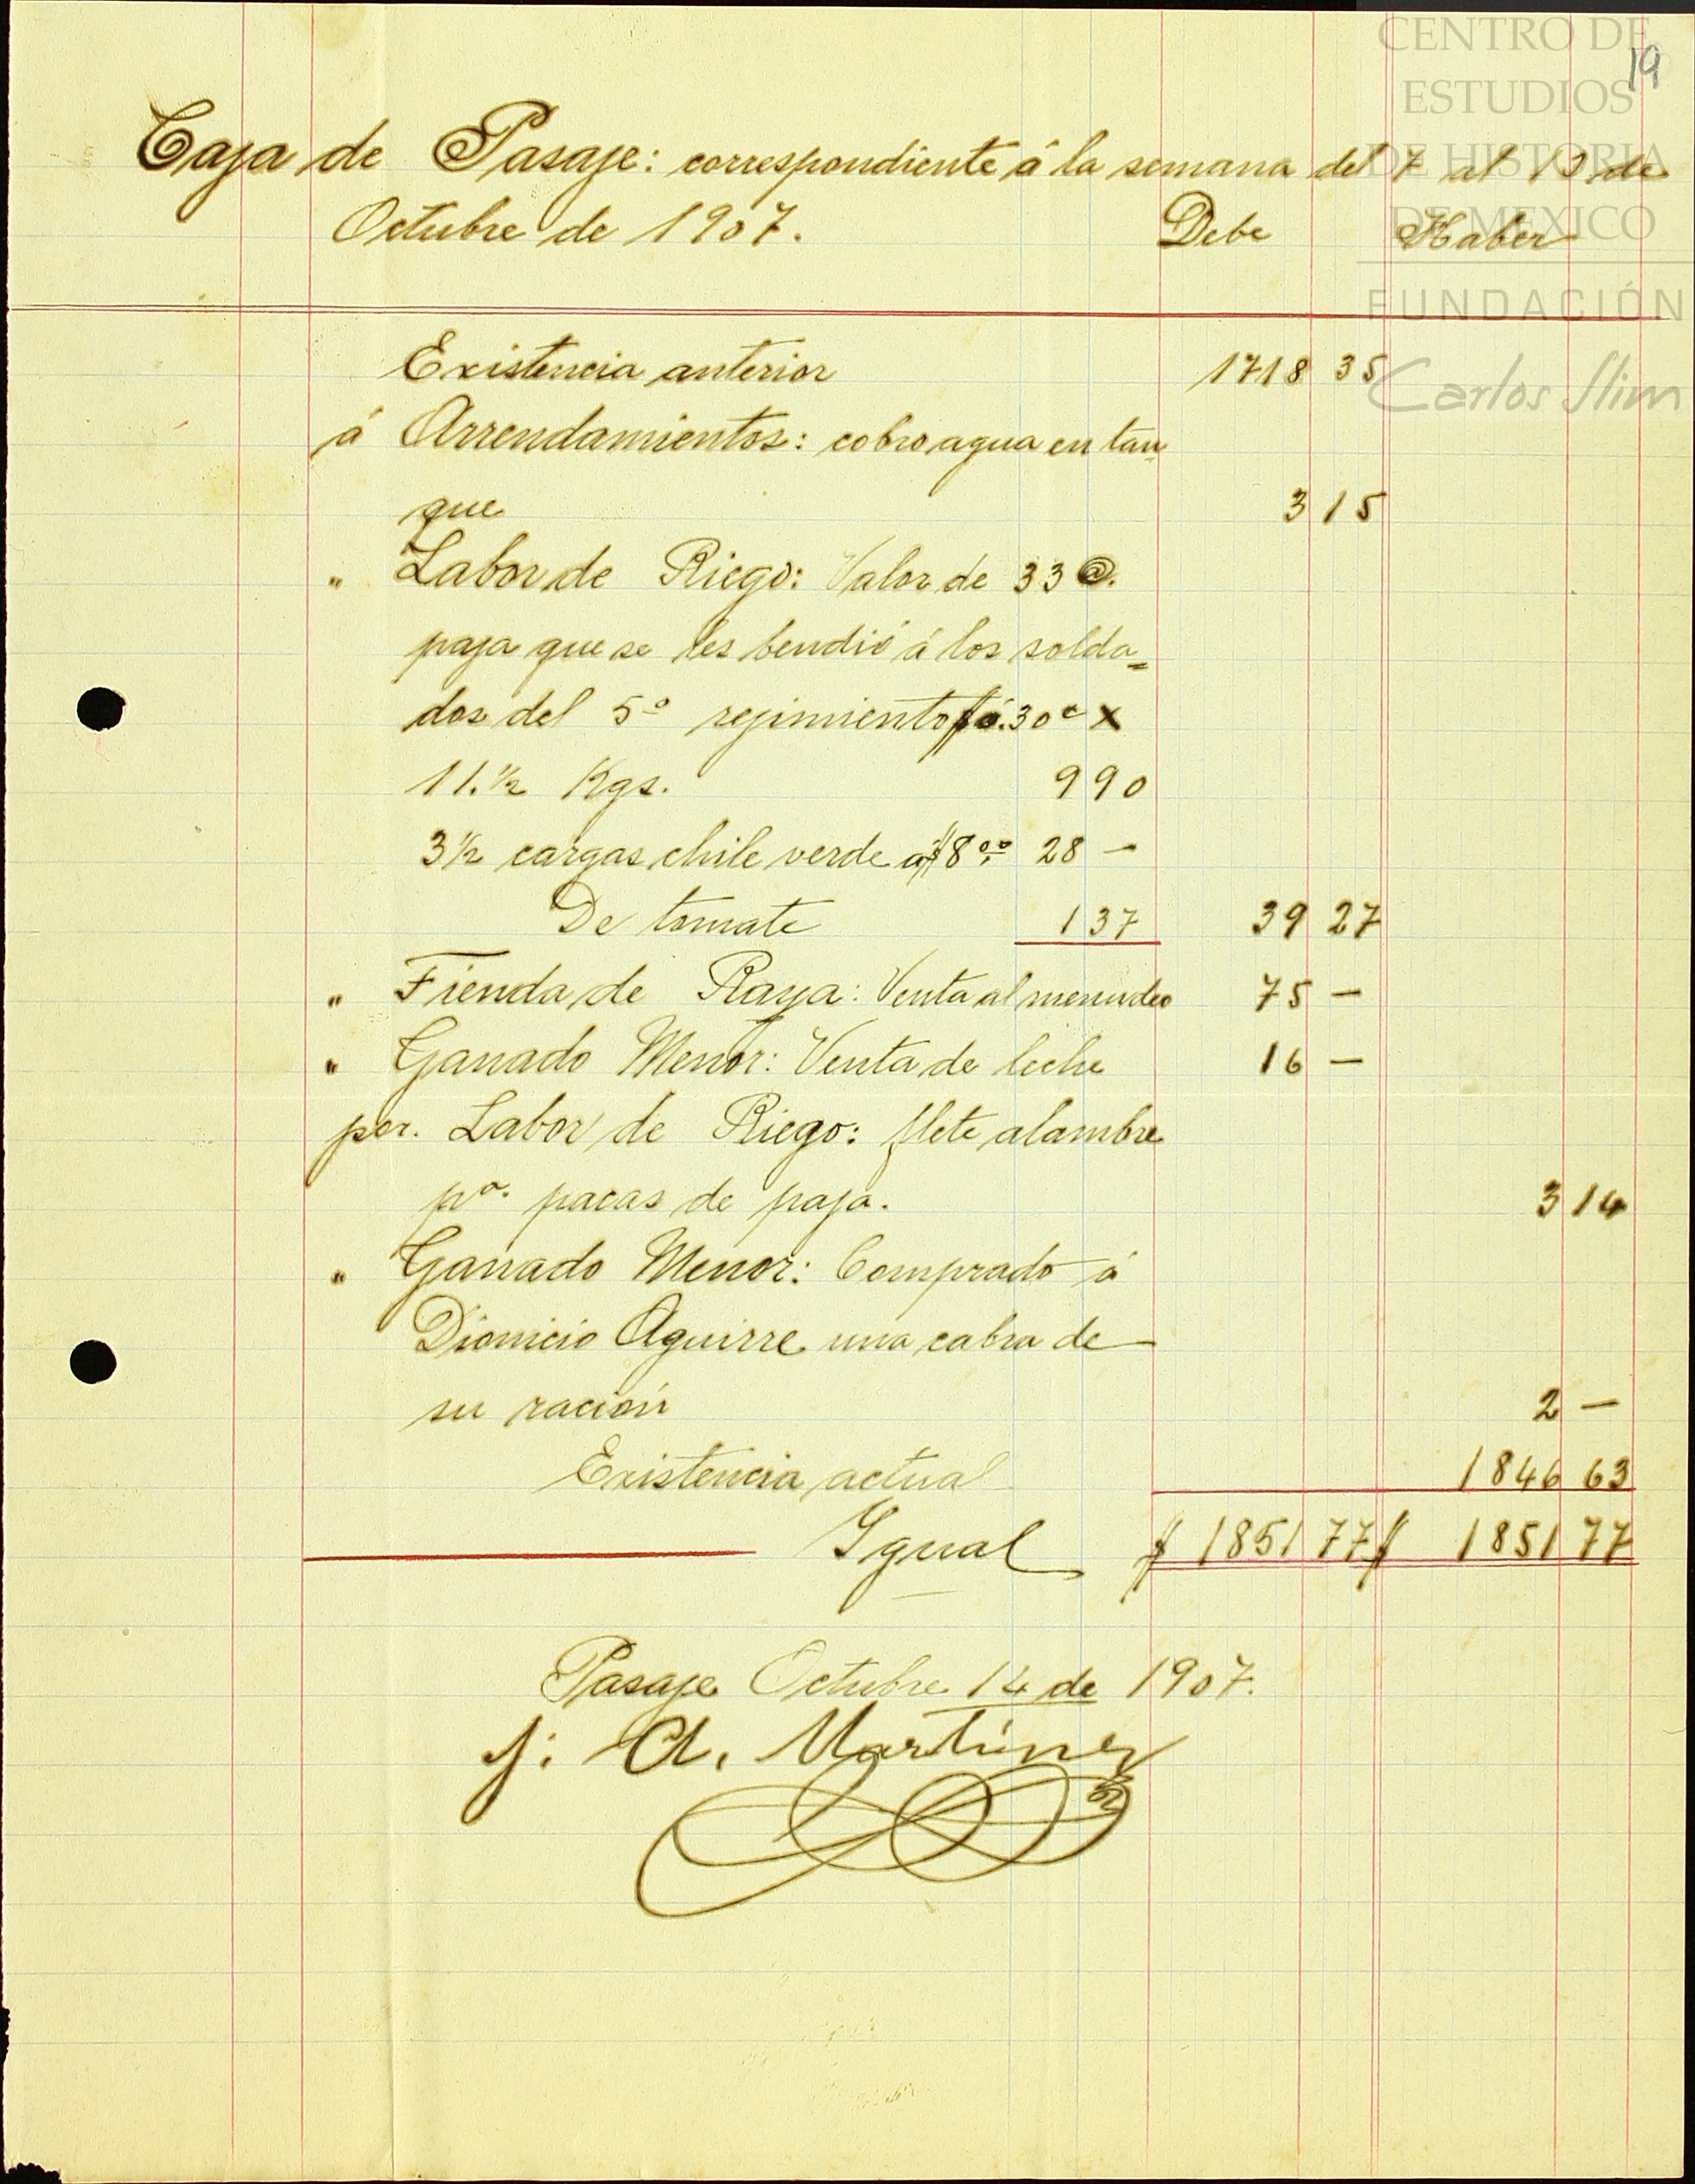 CENTRO DE
ESTUDIOS
DE HISTORIA
DE MEXICO
FUNDACIÓN
Carlos Slim
19
Caja de Pasaje: correspondiente á la semana del 7 al 13 de
Octubre de 1907. Debe Haber
Existencia anterior 1718 35
á Arrendamientos: cobro agua en tan
que 3 15
" Labor de Riego: Valor de 33 @.
paja que se les bendió á los solda=
dos del 5º rejimiento á 30c x
11.½ Kgs. 9 90
3½ cargas chile verde a $8.00 28 —
De tomate 1 37 39 27
" Tienda de Raya: Venta al menudeo 75 —
" Ganado Menor: Venta de leche 16 —
por. Labor de Riego: flete alambre
pa. pacas de paja. 3 14
" Ganado Menor: Comprado á
Dionicio Aguirre una cabra de
su ración 2 —
Existencia actual 1846 63
Ygual $ 1851 77 $ 1851 77
Pasaje Octubre 14 de 1907.
J. A. Martínez